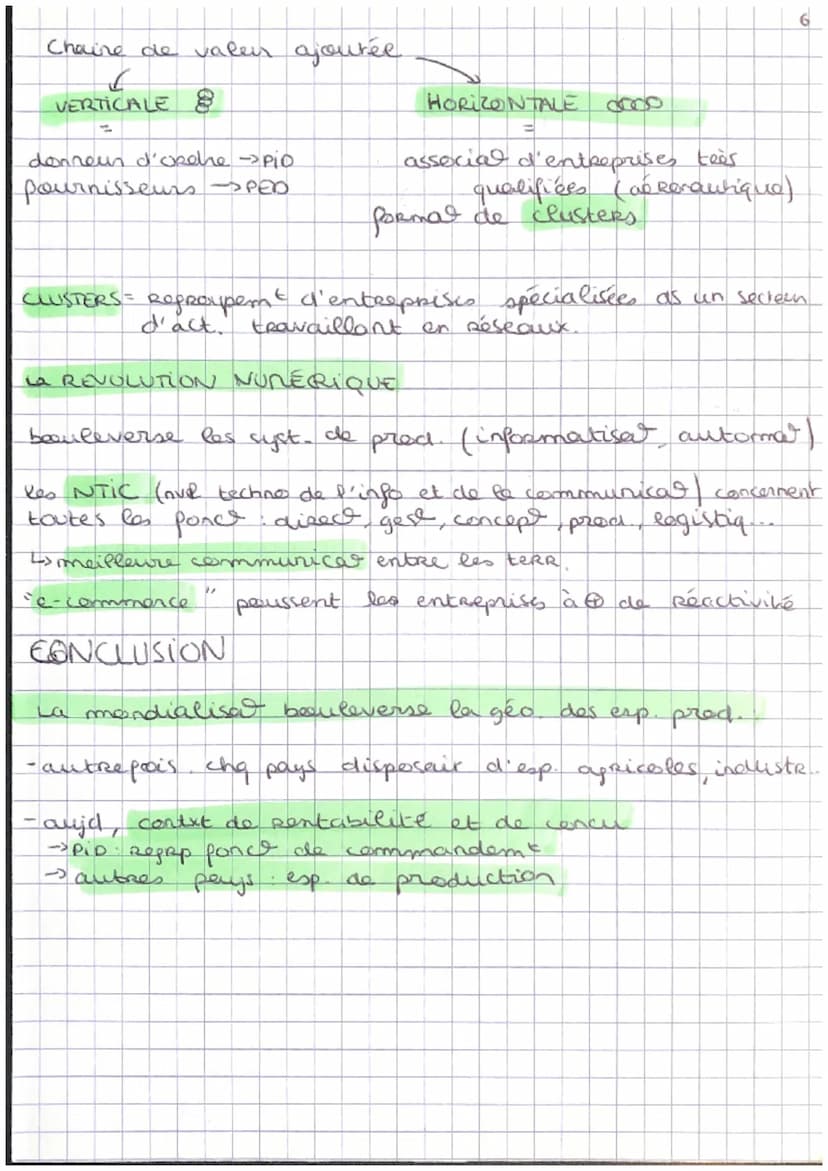 6
Chaine de valeur ajoutée
VERTICALE
HORIZONTALE
=
=
donneur d'ordre → PiD
fournisseurs → PED
associat° d'entreprises très
qualifiées (aéronautique)
format° de clusters
CLUSTERS = Regroupemt d'entreprises spécialisées ds un secteur
d'act. travaillant en réseaux.
La REVOLUTION NUMÉRIQUE
bouleverse les syst. de prod. (informatisat°, automat°)
Les NTIC (nvl techno de l'info et de la communicat°) concernent
toutes les fonct° : direct°, gest°, concept°, prod., logistiq...
↳ meilleure communicat° entre les terr.
"e-commerce" poussent les entreprises à ⊕ de réactivité
CONCLUSION
La mondialisat° bouleverse la géo. des esp. prod.
- autrefois, chq pays disposait d'esp. agricoles, industr..
- aujd, contxt de rentabilité et de concu
→ PiD : regrp fonct° de commandemt
→ autres pays : esp. de production